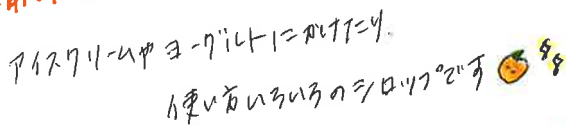 アイスクリームや ヨーグルトにかけたり、
使い方いろいろのシロップです